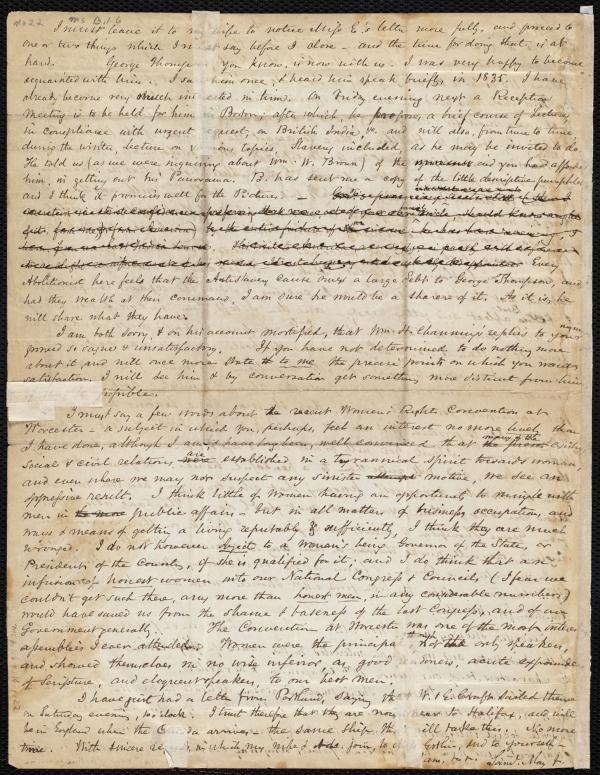 No 22 Ms B.1.6
I must leave it to my wife to notice Miss E's letter more fully, and proceed to
one or two things which I must say before I close - and the time for doing that is at
hand. George Thompson, you know, is now with us. I was very happy to become
acquainted with him. I saw him once, & heard him speak briefly, in 1835. I have
already become very much interested in him. On Friday evening next a Reception
Meeting is to be held for him in Boston; after which, he proposes a brief course of lectures,
in compliance with urgent request, on British India, &c. and will also, from time to time
during the winter, lecture on various topics, Slavery included, as he may be invited to do.
He told us (as we were inquiring about Wm. W. Brown) of the and you had afforded
him, in getting out his Panorama. B. has sent me a copy of the little descriptive pamphlet
and I think it promises well for the Pictures. -
Every
Abolitionist here feels that the Antislavery cause owes a large debt to George Thompson, and
had they wealth at their command, I am sure he would be a sharer of it. As it is, he
will share what they have.
I am both sorry & on his account mortified, that Wm. H. Channing's replies to your
proved so vague & unsatisfactory. If you have not determined to do nothing more
about it, and will once more state to me the precise points on which you want
satisfaction, I will see him & by conversation get something more distinct from him
if possible.
I must say a few words about the recent Women's Rights Convention at
Worcester - a subject in which you, perhaps, feel an interest no more lively than
I have done, although I am, & have long been, well convinced that many of the
social & civil relations are established in a tyrannical spirit towards woman,
and even where we may not suspect any sinister motive, we see an
oppressive result. I think little of Women having an opportunity to mingle with
men in public affairs - but in all matters of business, occupation, and
ways & means of getting a living reputably & sufficiently, I think they are much
wronged. I do not however object to a woman's being Governor of the State, or
President of the Country, if she is qualified for it; and I do think that an
infusion of honest women into our National Congress & Councils, (I fear we
couldn't get such there, any more than honest men, in any considerable numbers,)
would have saved us from the shame & baseness of the last Congress, and of our
Government generally. The Convention at Worcester was one of the most interesting
assemblies I ever attended. Women were the principal, tho' not the only speakers,
and showed themselves in no wise inferior, as good reasoners, acute expounders
of Scripture, and eloquent speakers, to our best men.
I have just had a letter from Portland, saying that W. & E. Crafts sailed thence
on Saturday evening, I trust therefore that they are now near to Halifax, and will
be in England when the Canada arrives - the same ship that will take this. No more
time. With sincere regards, in which my wife joins, to Esthin, and to yourself -
I am, Saml. May Jr.